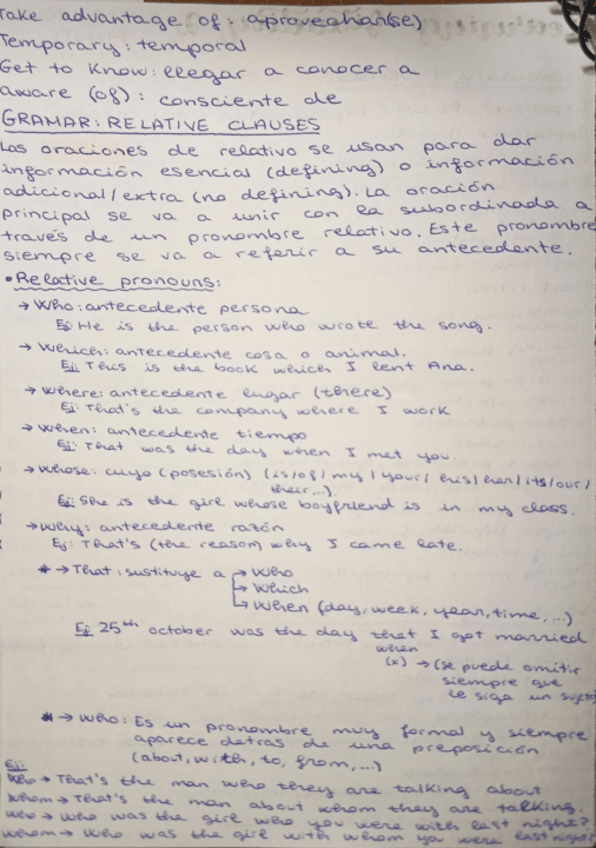 Take advantage of: aprovechar(se)
Temporary: temporal
Get to know: llegar a conocer a
aware (of): consciente de
GRAMAR: RELATIVE CLAUSES
Las oraciones de relativo se usan para dar
información esencial (defining) o información
adicional/extra (no defining). La oración
principal se va a unir con la subordinada a
través de un pronombre relativo. Este pronombre
siempre se va a referir a su antecedente.
• Relative pronouns:
→ Who: antecedente persona.
Ej: He is the person who wrote the song.
→ Which: antecedente cosa o animal.
Ej: This is the book which I lent Ana.
→ Where: antecedente lugar (there)
Ej: That's the company where I work
→ When: antecedente tiempo
Ej: That was the day when I met you.
→ Whose: cuyo (posesión) (is/of/my/your/his/her/its/our/
their...).
Ej: She is the girl whose boyfriend is in my class.
→ Why: antecedente razón
Ej: That's (the reason) why I came late.
* → That: sustituye a → Who
→ Which
→ When (day, week, year, time, ...)
Ej: 25th october was the day that I got married
when
(x) → (se puede omitir
siempre que
le siga un sujeto
* → Who: Es un pronombre muy formal y siempre
aparece detras de una preposición
(about, with, to, from, ...)
Ej:
Who → That's the man who they are talking about
Whom → That's the man about whom they are talking.
Who → Who was the girl who you were with last night?
Whom → Who was the girl with whom you were last night?